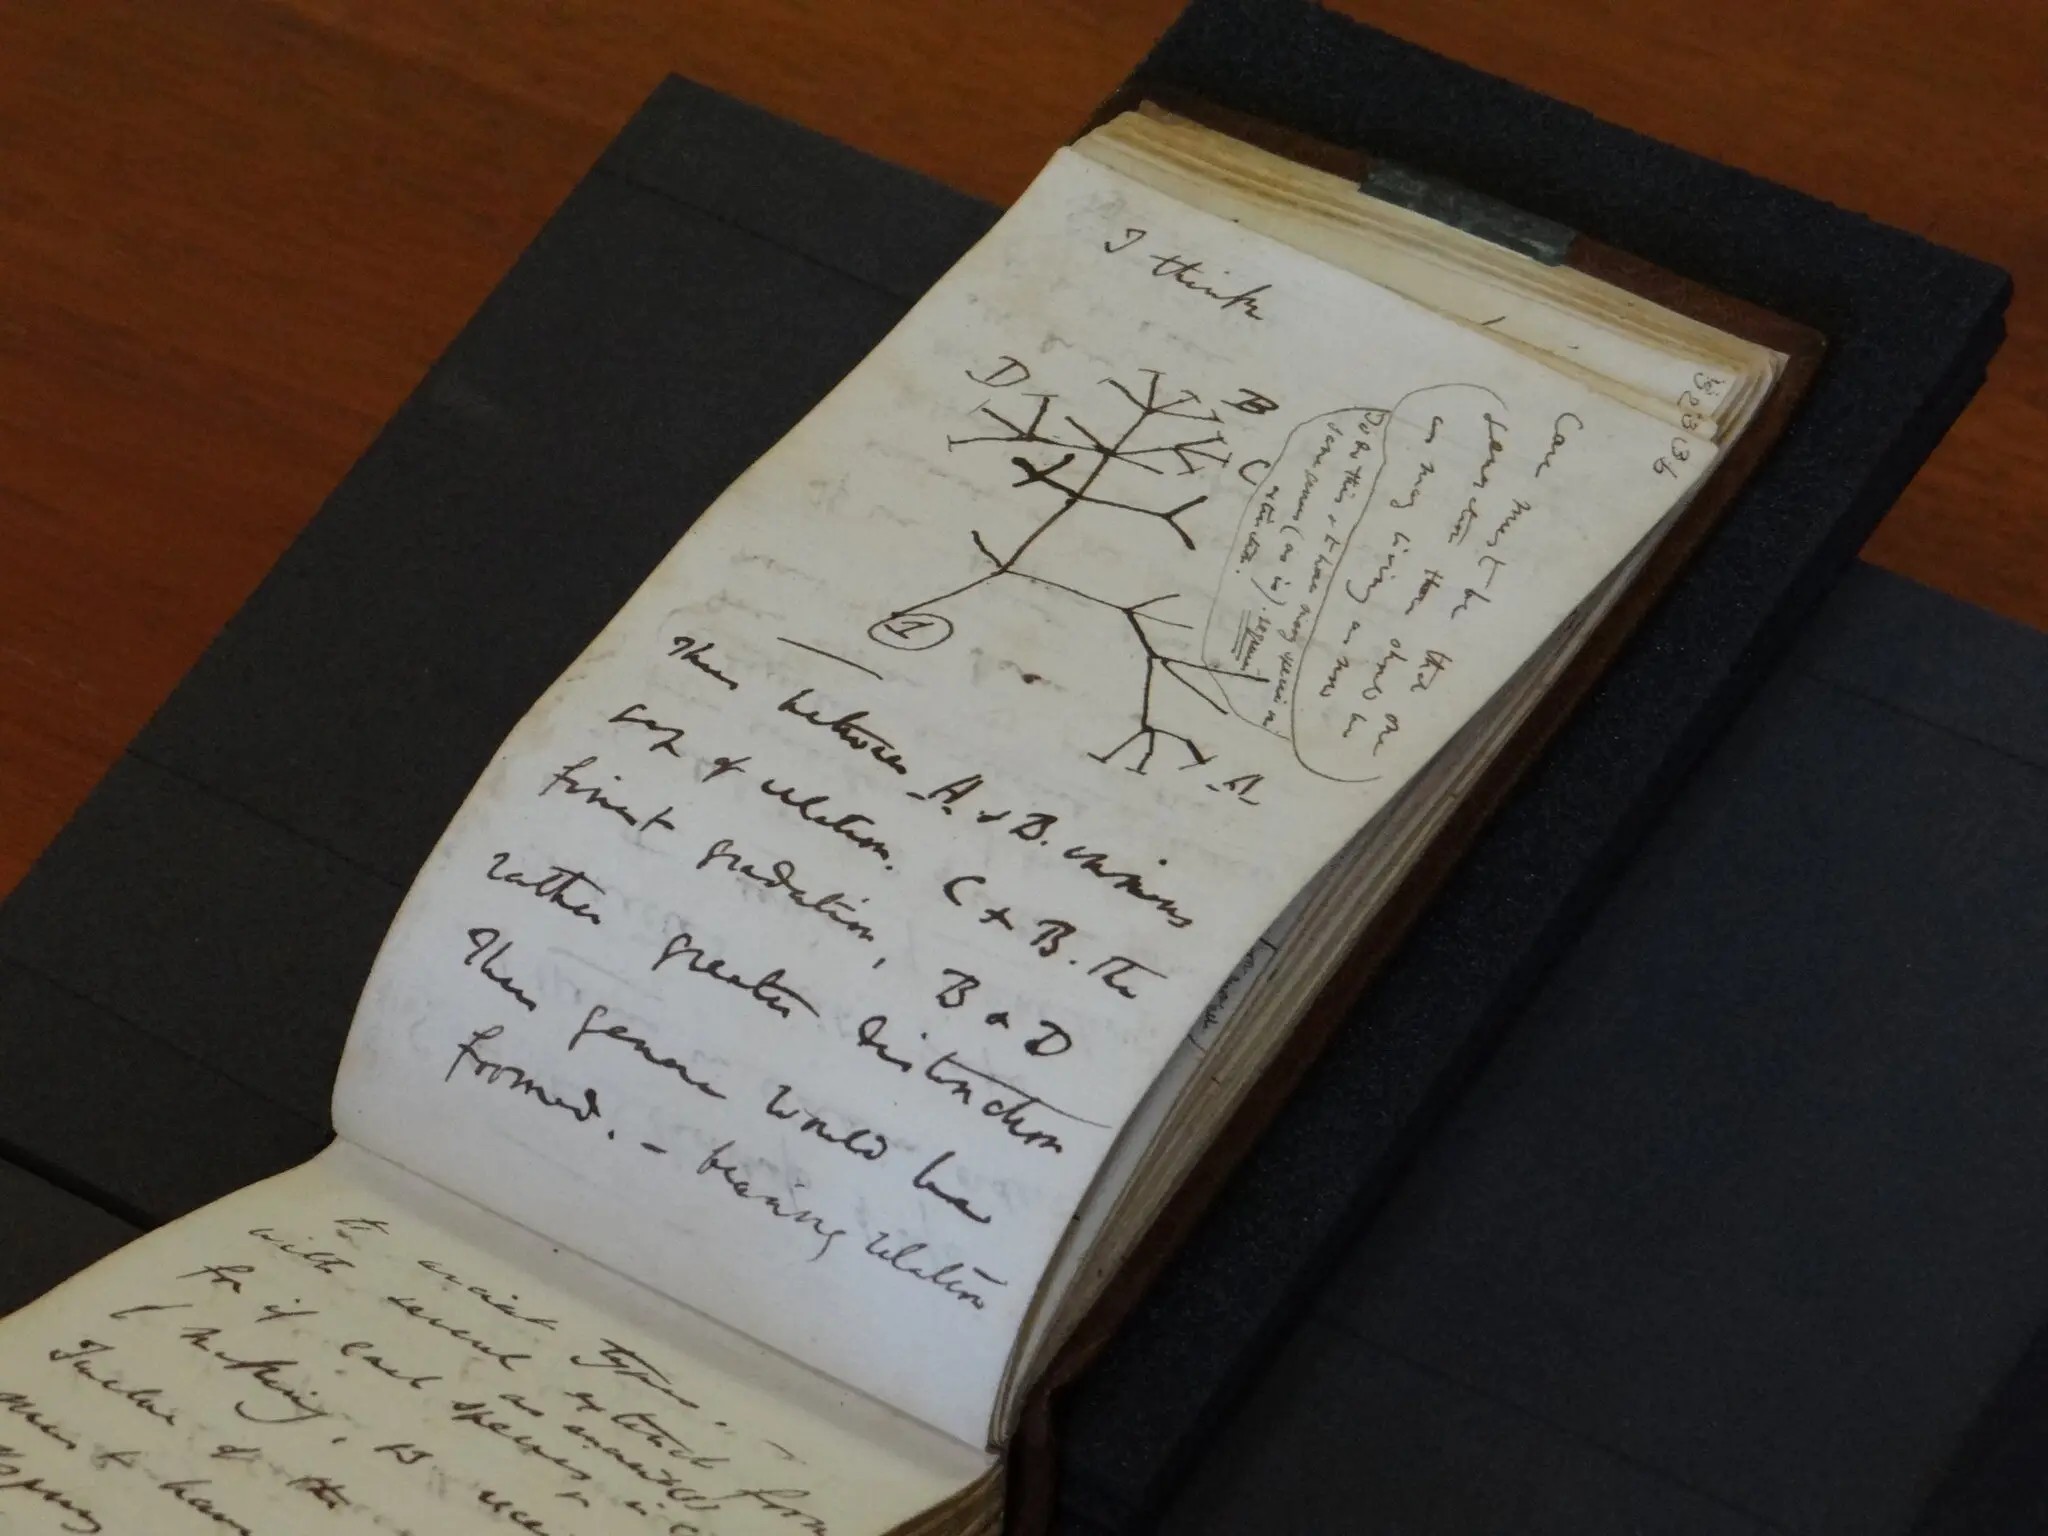 36
I think
Case must be that
one generation then should be
as many living as now
To do this & to have many species in
same genus (as is). requires
extinction.
D
B
C
A
1
Thus between A & B. immens
gap of relation. C & B. The
finest gradation, B & D
rather greater distinction
Thus genera would be
formed. — bearing relation
to ancient types. —
with several extinct forms
for if each species an ancient (1)
making, 13 rece
Twelve of the